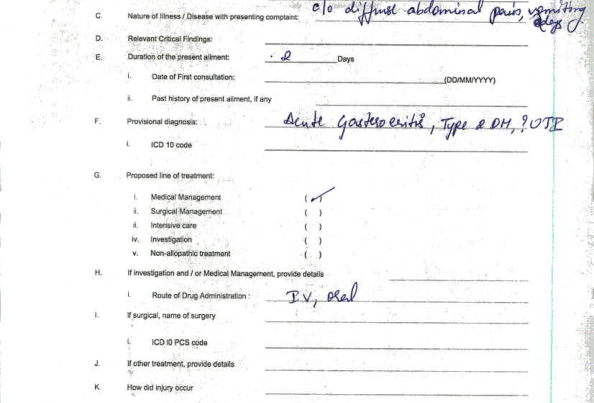 C. Nature of Illness / Disease with presenting complaint: c/o diffuse abdominal pain, vomiting
2 days
D. Relevant Critical Findings:
E. Duration of the present ailment: 2 Days
i. Date of First consultation: (DD/MM/YYYY)
ii. Past history of present ailment, if any
F. Provisional diagnosis: Acute Gastroenteritis, Type 2 DM, ? UTI
i. ICD 10 code
G. Proposed line of treatment:
i. Medical Management (✓)
ii. Surgical Management ( )
ii. Intensive care ( )
iv. Investigation ( )
v. Non-allopathic treatment ( )
H. If investigation and / or Medical Management, provide details
i. Route of Drug Administration : IV, oral
i. If surgical, name of surgery
i. ICD I0 PCS code
J. If other treatment, provide details
K. How did injury occur